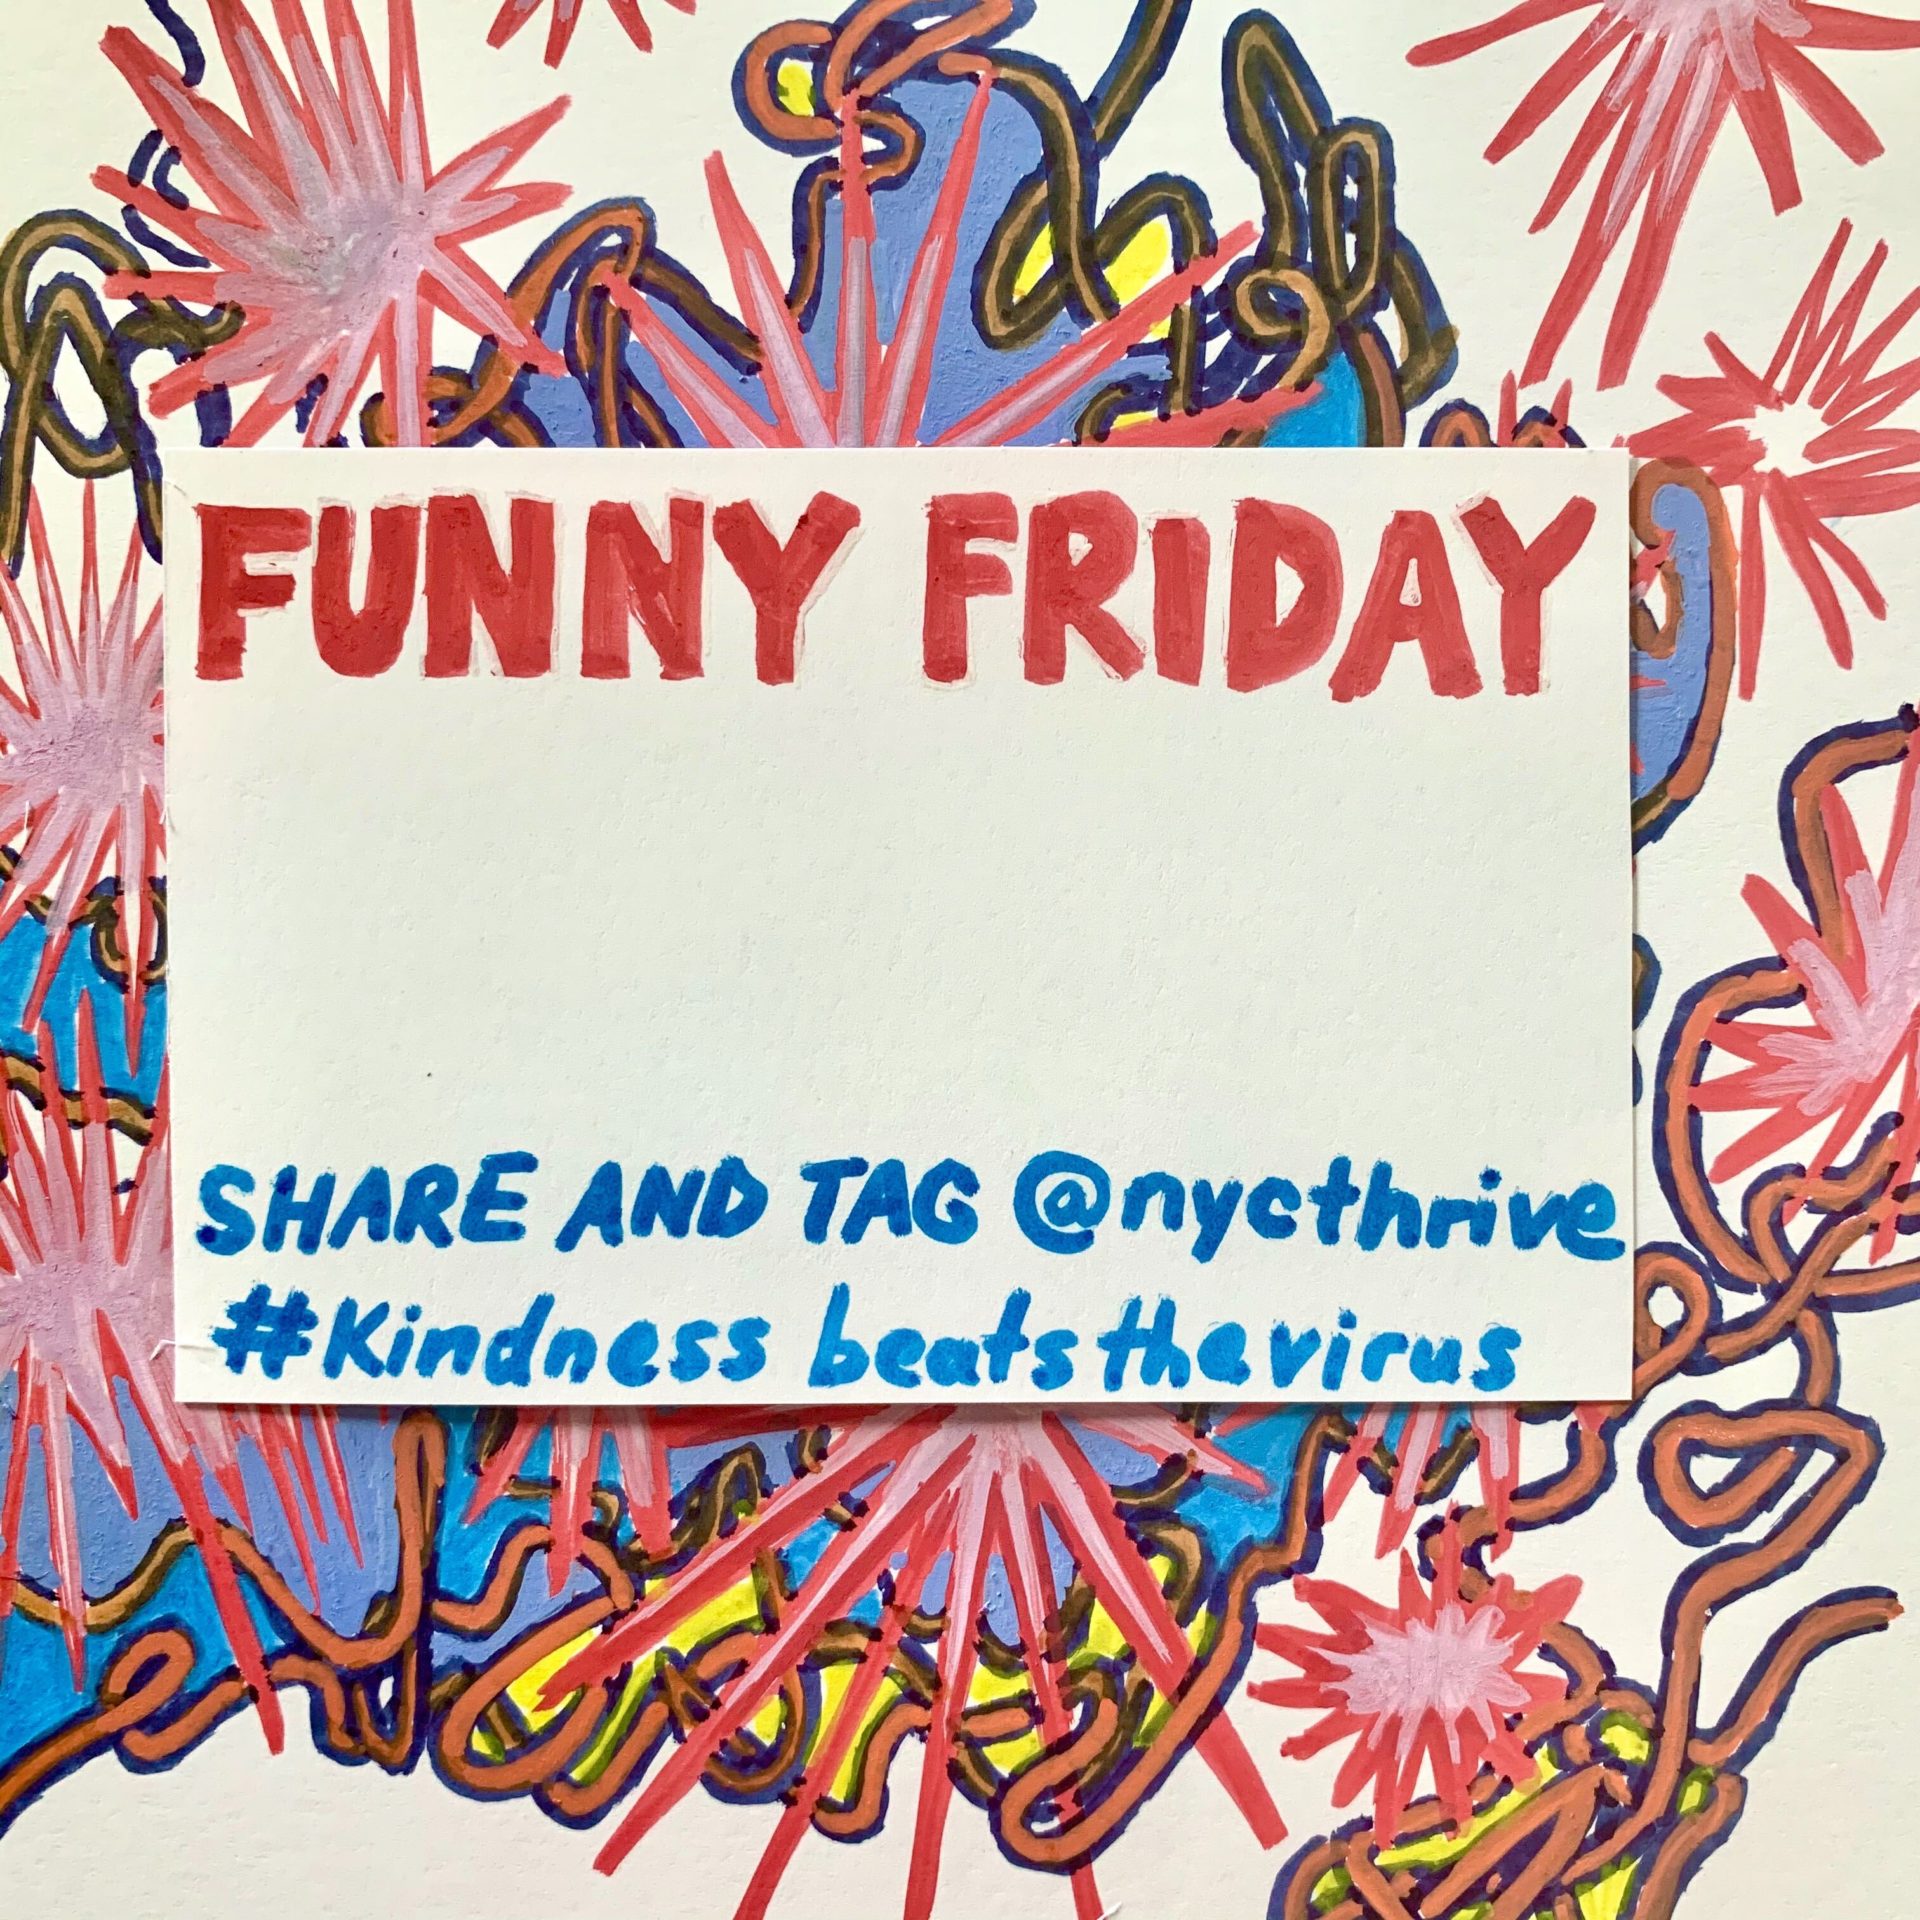 FUNNY FRIDAY
SHARE AND TAG @nycthrive
#Kindness beatsthevirus